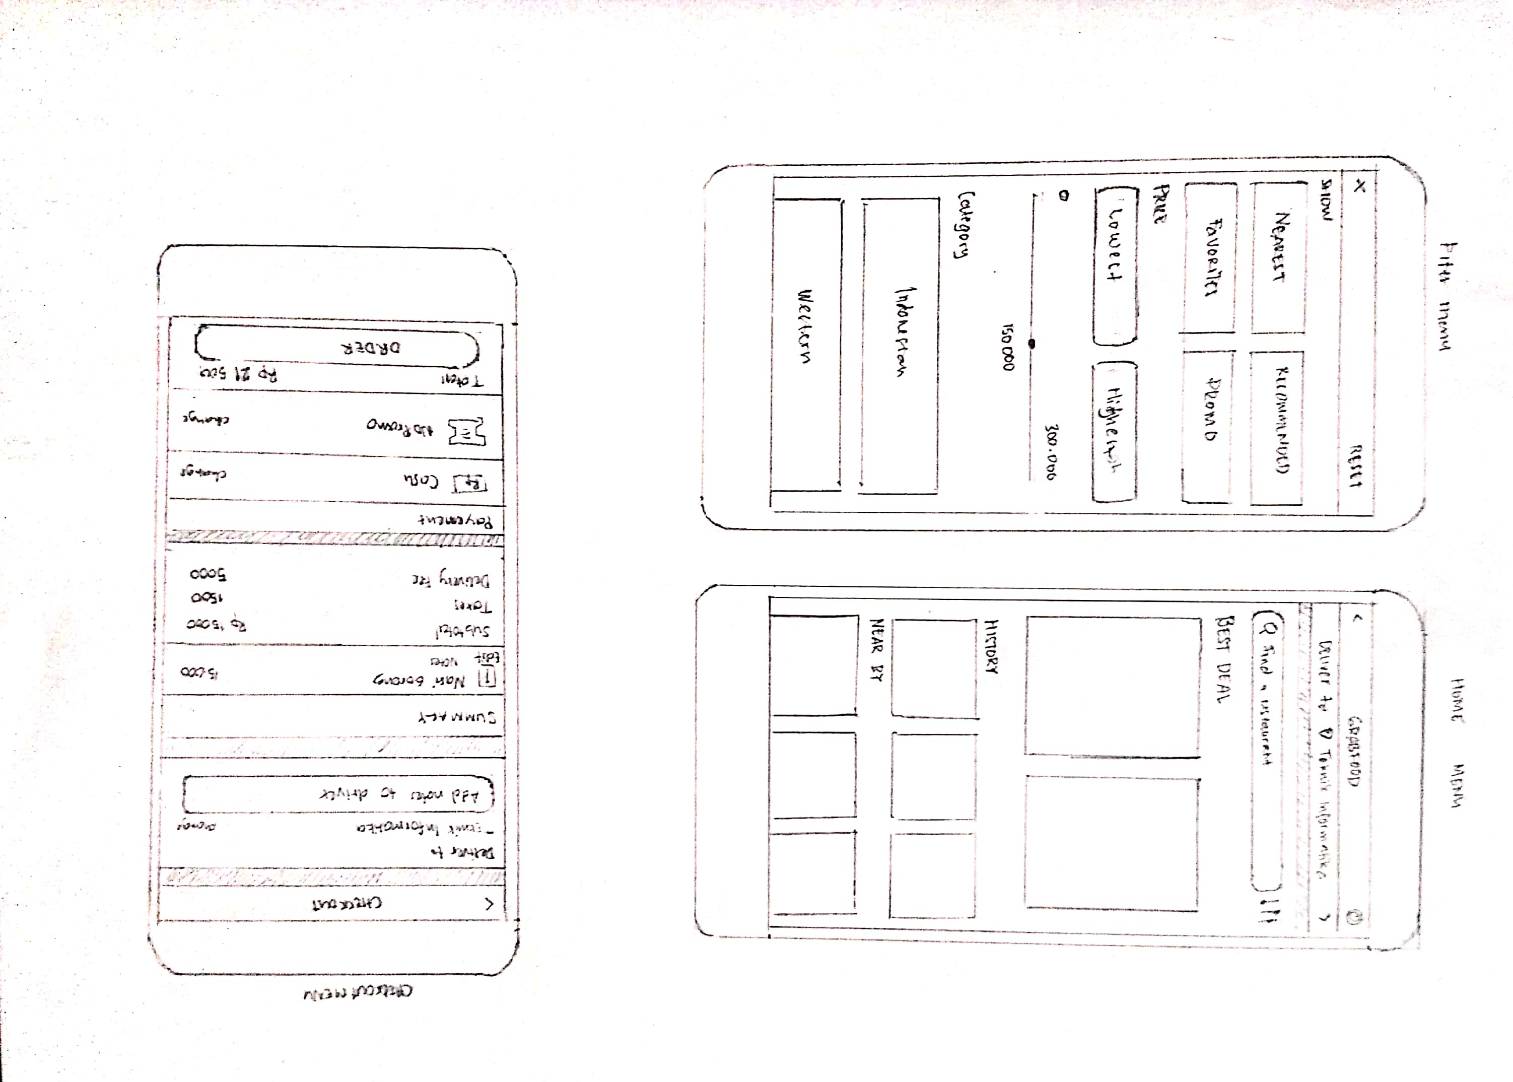 HOME MENU
< GRABFOOD
Deliver to Teknik Informatika >
Find a restaurant
BEST DEAL
HISTORY
NEAR BY
Filter menu
X RESET
SHOW
NEAREST RECOMMENDED
FAVORITES PROMO
PRICE
Lowest Highest
0 300.000
150 000
Category
Indonesian
Western
CHECKOUT MENU
< CHECKOUT
Deliver to
Teknik Informatika change
Add notes to driver
SUMMARY
1 Nasi Goreng 15.000
Edit Notes
Subtotal Rp 15000
Taxes 1500
Delivery Fee 5000
Payement
Rp Cash change
No Promo change
Total Rp 21 500
ORDER